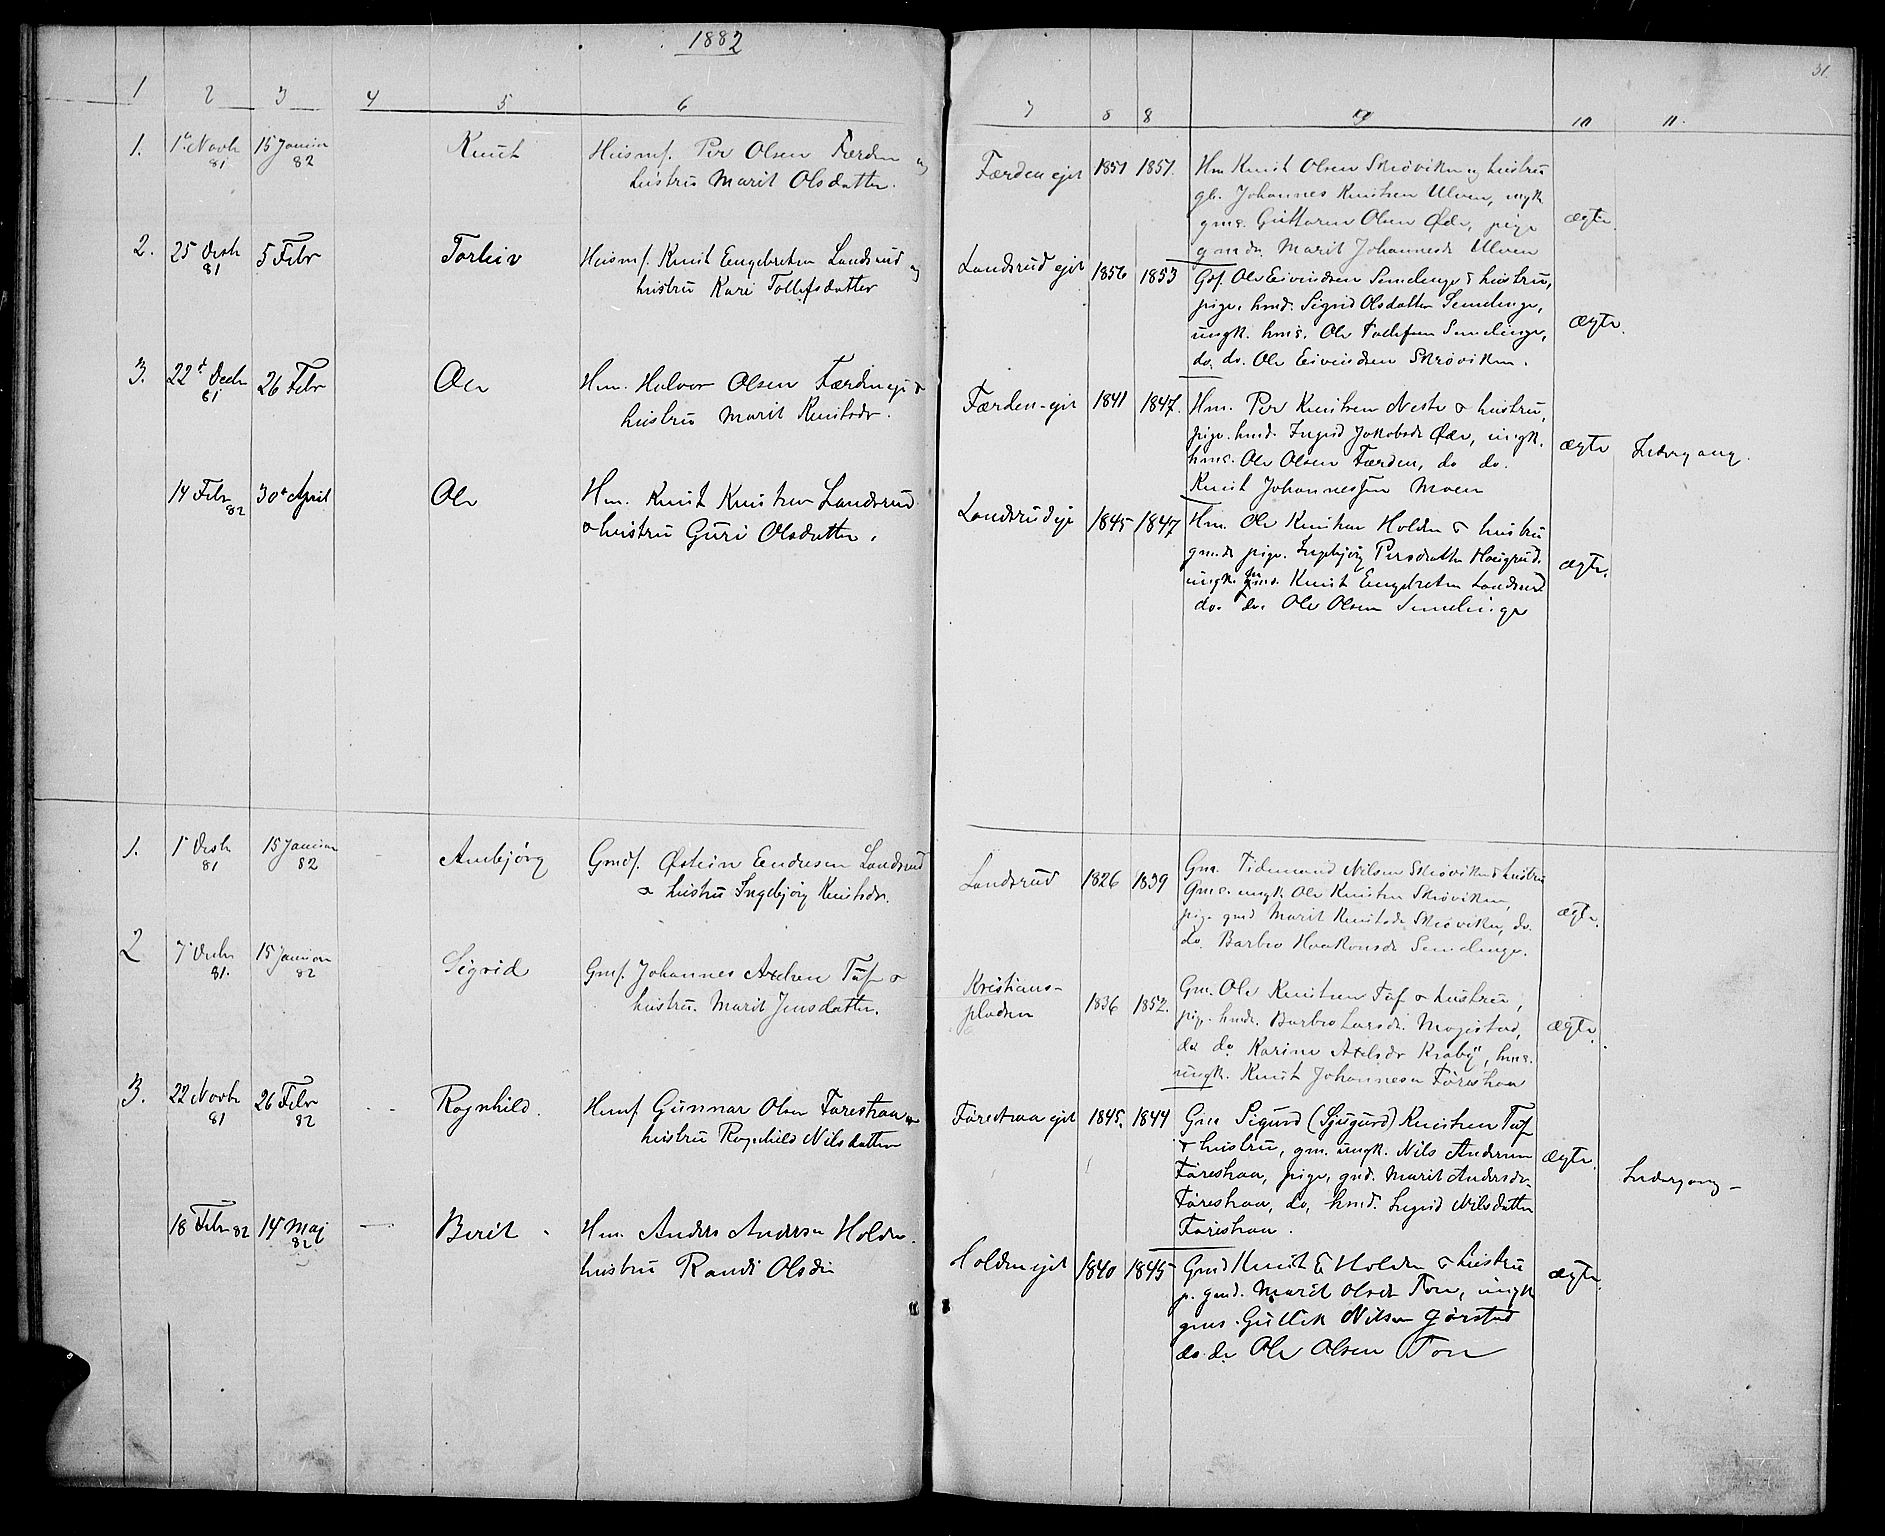 1882
31
1 2 3 4 5 6
7 8 8 9 10 11.
1. 1. Novbr 81 15 Januar 82 Knut Husmf. Per Olsen Færden og
hustru Marit Olsdatter.
Færdenejet 1851 1851. Hm Knut Olsen Skrøviken og hustru
gb. Johannes Knutsen Ulven, ungk.
gms. Guttorm Olsen Øde, pige
gmdr. Marit Johannesdr Ulven
ægte.
2. 25 Decbr 81 5 Febr Torleiv Husmf. Knut Engebretsen Landsrud og
hustru Kari Tollefsdatter
Landsrudejet 1856 1853 Gbf. Ole Eivindsen Semelenge & hustru,
pige. hmd. Sigrid Olsdatter Semelenge,
ungk. hms. Ole Tollefsen Semelenge,
do. do. Ole Eivindsen Skrøviken.
ægte.
3. 22d Decbr 81 26 Febr Ole Hm. Halvor Olsen Færdenejet &
hustru Marit Knutsdr.
Færden-ejet 1841 1847. Hm. Per Knutsen Neste & hustru,
pige. hmd. Ingrid Jakobsdr Øde, ungk.
hms. Ole Olsen Færden, do do.
Knut Johannessen Moen
ægte Ledvegang.
14 Febr 82 30te April Ole Hm. Knut Knutsen Landsrud
& hustru Guri Olsdatter.
Landsrudeje 1845 1847 Hm. Ole Knutsen Holden & hustru
gmdr pige. Ingebjørg Persdatter Haugrud.
ungk. hms. Knut Engebretsen Landsrud
do. do. Ole Olsen Semelenge
ægte.
1. 1' Decbr 81 15 Januar 82 - Ambjørg Gmdf. Østein Endresen Landsrud
& hustru Ingebjørg Knutsdr.
Landsrud 1826 1839 Gm. Tidemand Nilsen Skrøviken & hustru
Gms. ungk. Ole Knutsen Skrøviken,
pige gmd Marit Knutsdr Skrøviken, do.
do. Barbro Haakonsdr Semelenge.
ægte.
2 7' Decbr 81. 15 Januar 82 Sigrid Gmf. Johannes Axelsen Tuf &
hustru. Marit Jensdatter.
Kristians-
pladsen 1836 1852. Gm. Ole Knutsen Tuf & hustru,
pige. hmdr. Barbro Larsdr. Magistad,
do do Karine Axelsdr Kraby, hms.
ungk. Knut Johannesen Føreshaa
ægte.
3. 22 Novbr 81 26 Febr 82 - - Ragnhild. Hmf. Gunnar Olsen Føreshaa &
hustru Ragnhild Nilsdatter
Føreshaaejet 1845. 1844 Gm Sigurd (Sjugurd) Knutsen Tuf
& hustru, gm. ungk. Nils Andersen
Føreshaa, pige, gmd. Marit Andersdr.
Føreshaa, do, hmd. Ingrid Nilsdatter
Føreshaa.
ægte. Ledvegang -
18 Febr 82 14 Maj 82 - Berit Hm. Anders Andersen Holden.
hustru Randi Olsdr
Holdenejet 1840 1845 Gmd Knut E Holden & hustru
p. gmd. Marit Olsdr Ton, ungk
gms. Gullik Nilsen Gørstad
do. do Ole Olsen Ton
ægte.